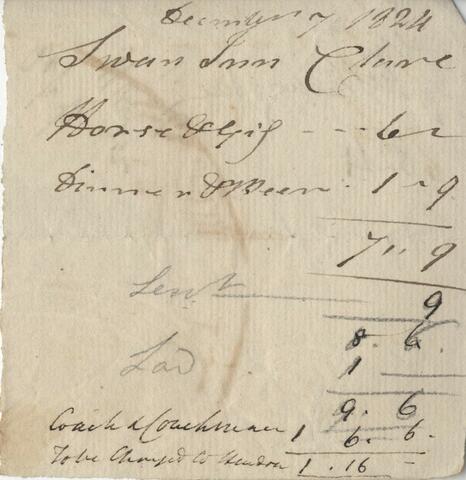 December 7 1824
Swan Inn Clare
Horse & Gig --- 6 -
Dinner & Beer . 1 - 9
7 " 9
Servt 9
8 . 6
Lad 1
9 . 6
Coach & Coachman 1 6 . 6 .
To be Charged to Hendon 1 . 16 -